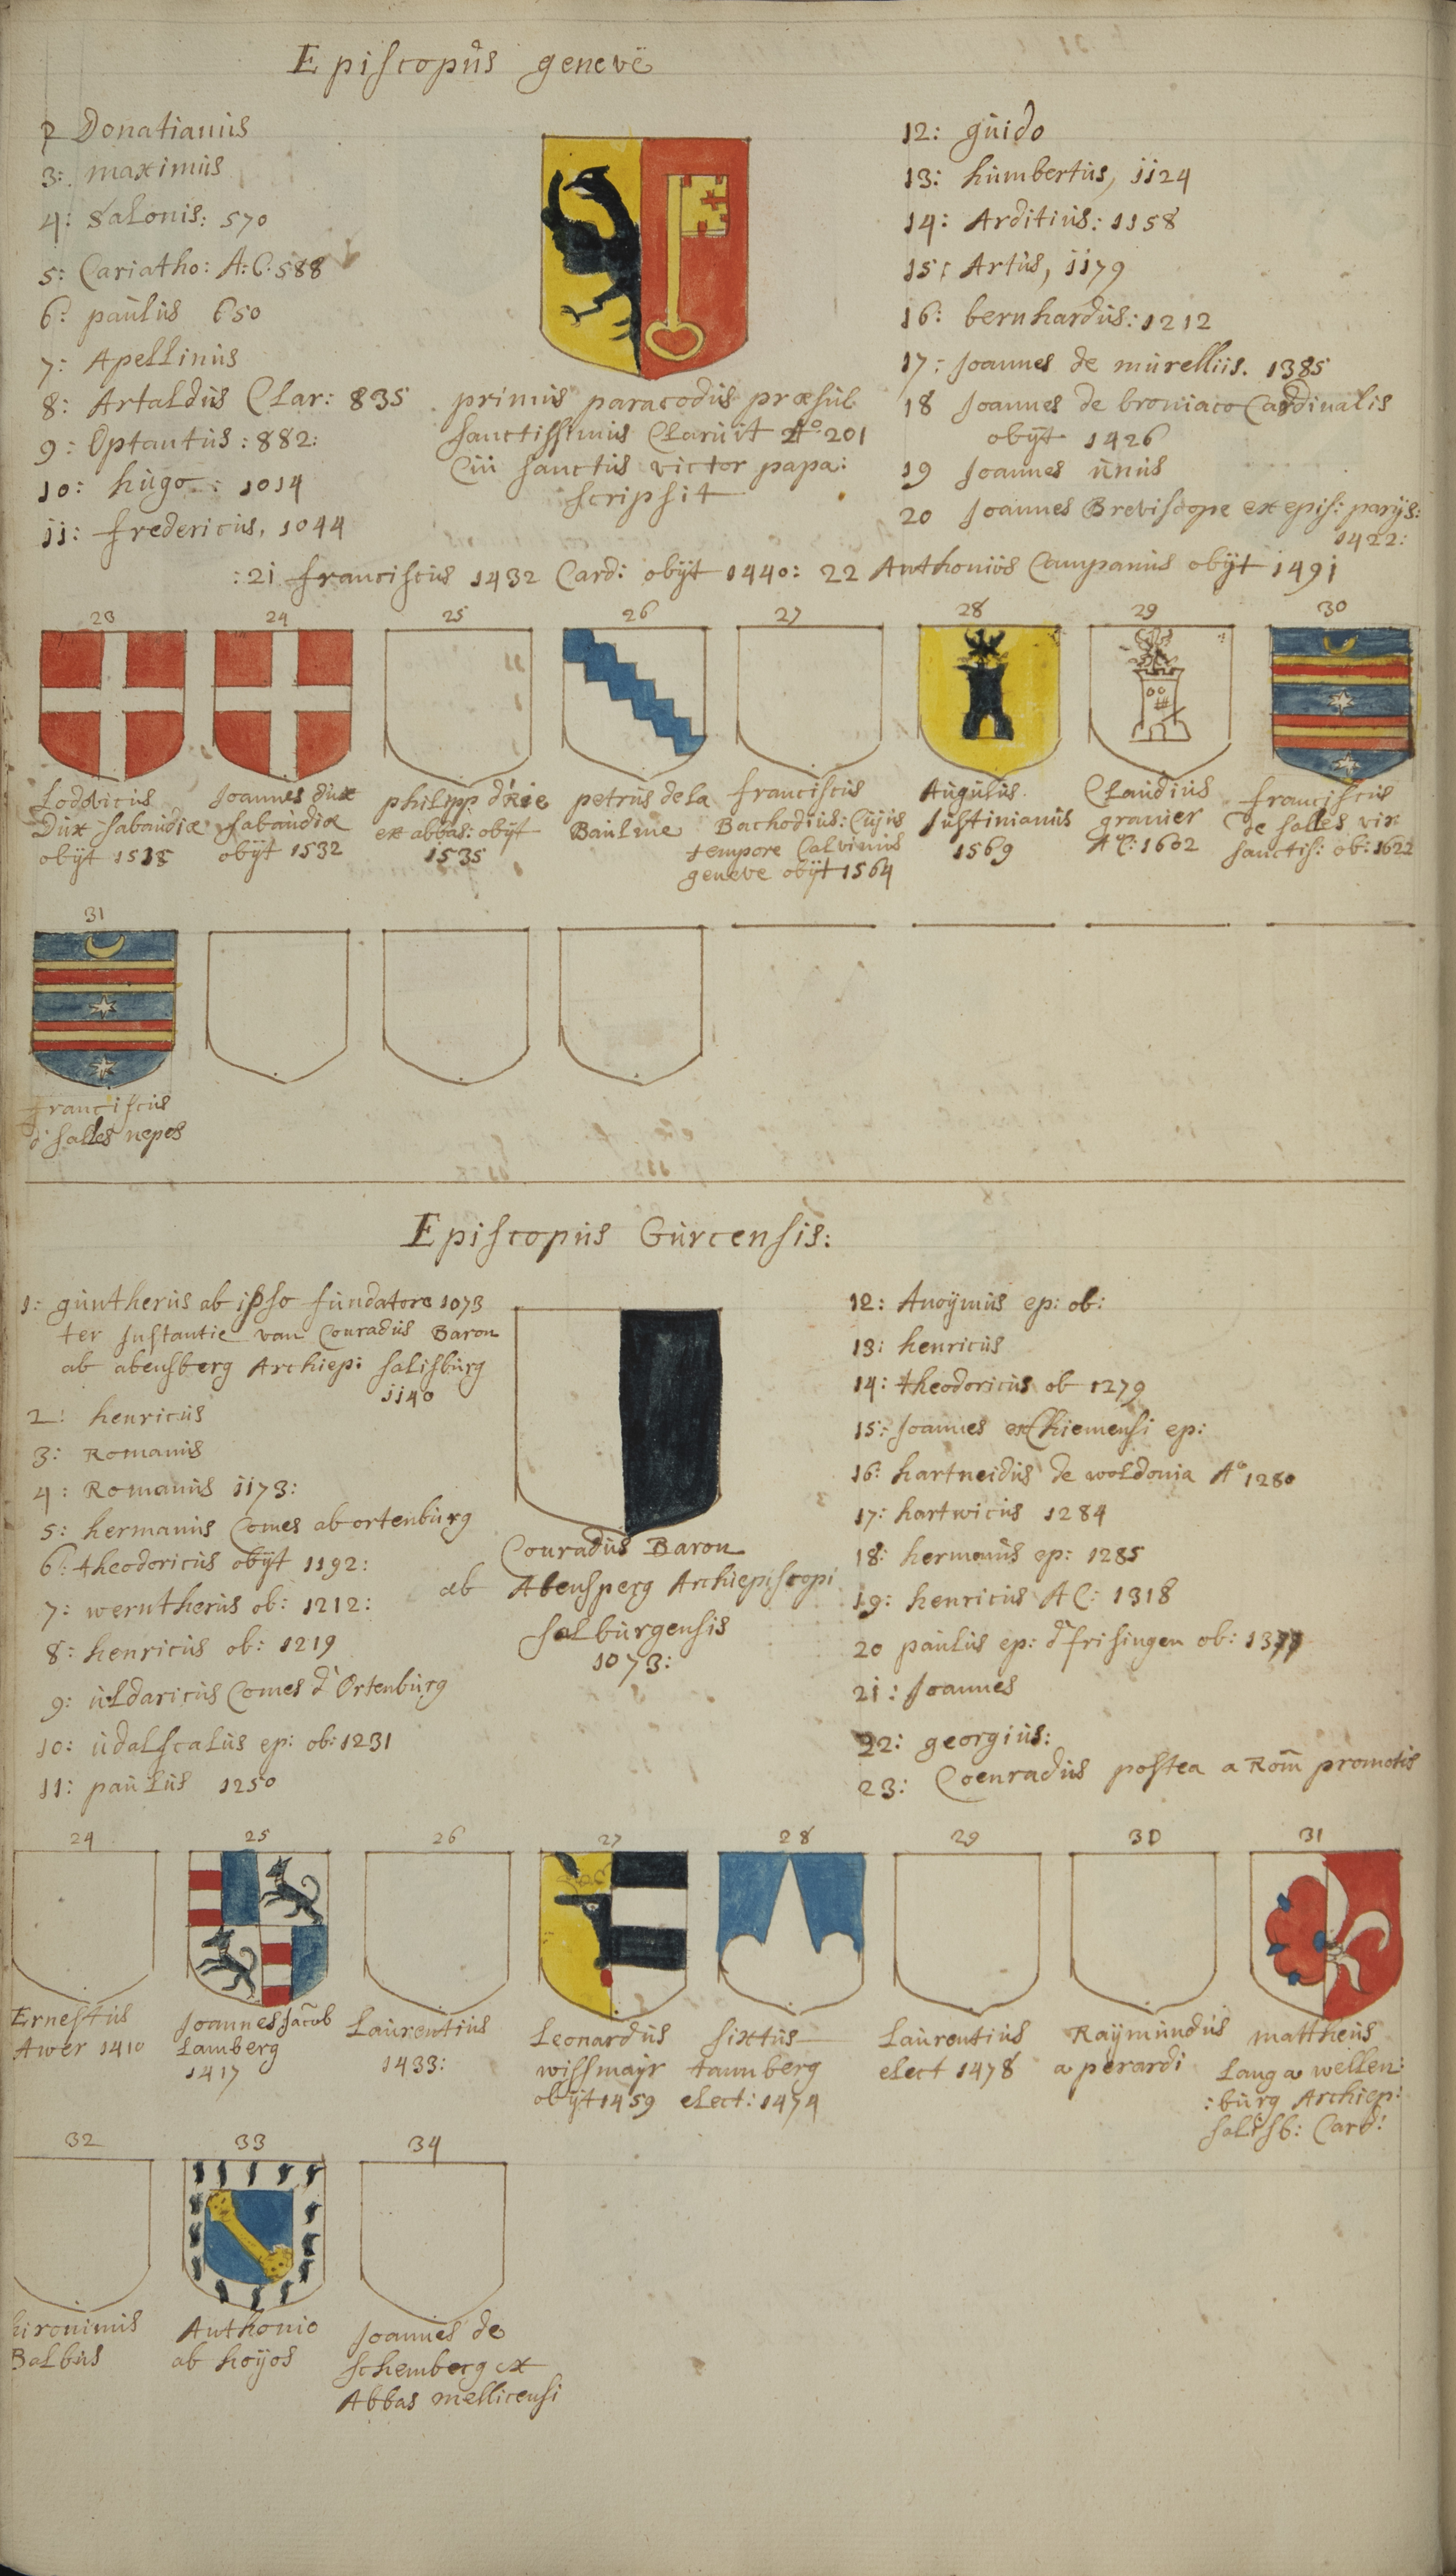 Episcopus genevë
2 Donatianus
3: maximus
4: Salonis: 570
5: Cariatho: A:C: 588
6: paulus 650
7: Apellinus
8: Artaldus Clar: 835
9: Optantus: 882:
10: hugo: 1014
11: fredericus, 1044
primus paracodus præsul
sanctissimus Claruit Aº 201
Cui sanctus victor papa:
scripsit
12: guido
13: humbertus, 1124
14: Arditius: 1158
15: Artus, 1179
16: bernhardus: 1212
17: Joannes de murelliis. 1385
18 Joannes de broniaco Cardinalis
obÿt 1426
19 Joannes unus
20 Joannes Breviscope ex epis: parÿs:
1422:
:21 franciscus 1432 Card: obÿt 1440: 22 Anthonius Campanus obÿt 1491
23 24 25 26 27 28 29 30
Lodovicus
Dux sabaudiæ
obÿt
Joannes dux
sabaudiæ
obÿt 1532
philipp d'Rie
ex abbas: obÿt
1535
petrus de la
Baulme
franciscus
Bachodius: Cujus
tempore Calvinus
geneve obÿt 1564
Augulus
Justinianus
1569
Claudius
granier
A C: 1602
franciscus
de salles vir
sanctis: ob: 1622
31
franciscus
d salles nepos
Episcopus Gurcensis:
1: guntherus ab ipso fundatore 1073
ter Instantie van Conradus Baron
ab abensberg Archiep: salisburg
1140
2: henricus
3: Romanus
4: Romanus 1173:
5: hermanus Comes ab ortenburg
6: theodoricus obÿt 1192:
7: werntherus ob: 1212:
8: henricus ob: 1219
9: uldaricus Comes d'Ortenburg
10: udalscalus ep: ob: 1231
11: paulus 1250
Conradus Baron
ab Abensperg Archiepiscopi
salburgensis
1073:
12: Anoÿmus ep: ob:
13: henricus
14: theodoricus ob 1279
15: Joannes ex Chiemensi ep:
16: hartneidus de woldonia Aº 1280
17: hartwicus 1284
18: hermanus ep: 1285
19: henricus A C: 1318
20 paulus ep: d'frisingen ob: 1377
21: Joannes
22: georgius:
23: Coenradus postea a Rom̃ promotis
24 25 26 27 28 29 30 31
Ernestus
Awer 1410
Joannes Jacob
Lamberg
1417
Laurentius
1433:
Leonardus
wissmaÿr
obÿt 1459
sixtus
tannberg
elect: 1474
Laurentius
elect 1478
Raÿmundus
a perardi
mattheus
Lang a wellen:
:burg Archiep:
salisb: Card:
32 33 34
hironimus
Balbus
Anthonio
ab hoÿos
Joannes de
schemberg ex
Abbas mellicensi